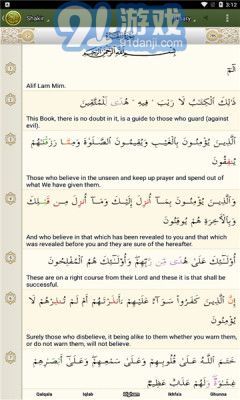 91游戏
91danji.com
3:12
Shakir
بِسْمِ اللَّهِ الرَّحْمَٰنِ الرَّحِيمِ
الٓمٓ
Alif Lam Mim.
ذَٰلِكَ الْكِتَابُ لَا رَيْبَ ۛ فِيهِ ۛ هُدًى لِّلْمُتَّقِينَ
This Book, there is no doubt in it, is a guide to those who guard (against
evil).
الَّذِينَ يُؤْمِنُونَ بِالْغَيْبِ وَيُقِيمُونَ الصَّلَوٰةَ وَمِمَّا رَزَقْنَٰهُمْ
يُنفِقُونَ
Those who believe in the unseen and keep up prayer and spend out of
what We have given them.
وَالَّذِينَ يُؤْمِنُونَ بِمَآ أُنزِلَ إِلَيْكَ وَمَآ أُنزِلَ مِن قَبْلِكَ
وَبِالْآخِرَةِ هُمْ يُوقِنُونَ
And who believe in that which has been revealed to you and that which
was revealed before you and they are sure of the hereafter.
أُولَٰٓئِكَ عَلَىٰ هُدًى مِّن رَّبِّهِمْ ۖ وَأُولَٰٓئِكَ هُمُ الْمُفْلِحُونَ
These are on a right course from their Lord and these it is that shall be
successful.
إِنَّ الَّذِينَ كَفَرُوا سَوَآءٌ عَلَيْهِمْ ءَأَنذَرْتَهُمْ أَمْ لَمْ تُنذِرْهُمْ لَا
يُؤْمِنُونَ
Surely those who disbelieve, it being alike to them whether you warn them,
or do not warn them, will not believe.
خَتَمَ اللَّهُ عَلَىٰ قُلُوبِهِمْ وَعَلَىٰ سَمْعِهِمْ ۖ وَعَلَىٰٓ أَبْصَٰرِهِمْ
غِشَٰوَةٌ ۖ وَلَهُمْ عَذَابٌ عَظِيمٌ
Qalqala Iqlab Idgham Ikhfaa Ghunna